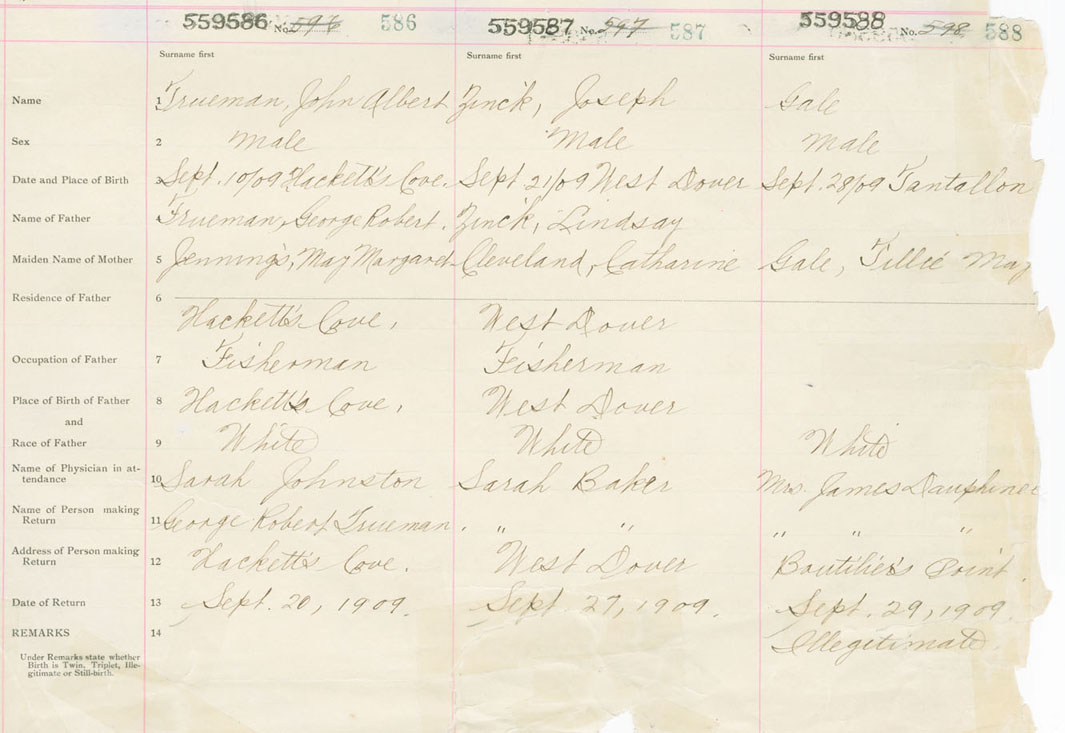 559586 No. 596 586 559587 No. 597 587 559588 No. 598 588
Surname first Surname first Surname first
Name 1 Trueman, John Albert Zinck, Joseph Gale
Sex 2 Male Male Male
Date and Place of Birth 3 Sept. 10/09 Hackett's Cove. Sept 21/09 West Dover Sept. 28/09 Tantallon
Name of Father Trueman, George Robert. Zinck, Lindsay
Maiden Name of Mother 5 Jennings, May Margaret Cleveland, Catharine Gale, Tillie May
Residence of Father 6
Hackett's Cove, West Dover
Occupation of Father 7 Fisherman Fisherman
Place of Birth of Father 8 Hackett's Cove, West Dover
and
Race of Father 9 White White White
Name of Physician in at-
tendance 10 Sarah Johnston Sarah Baker Mrs. James Dauphinee
Name of Person making
Return 11 George Robert Trueman. " " " " "
Address of Person making
Return 12 Hackett's Cove. West Dover Boutilier's Point.
Date of Return 13 Sept. 20, 1909. Sept 27, 1909. Sept. 29, 1909.
REMARKS 14 Illegitimate.
Under Remarks state whether
Birth is Twin, Triplet, Ille-
gitimate or Still-birth.